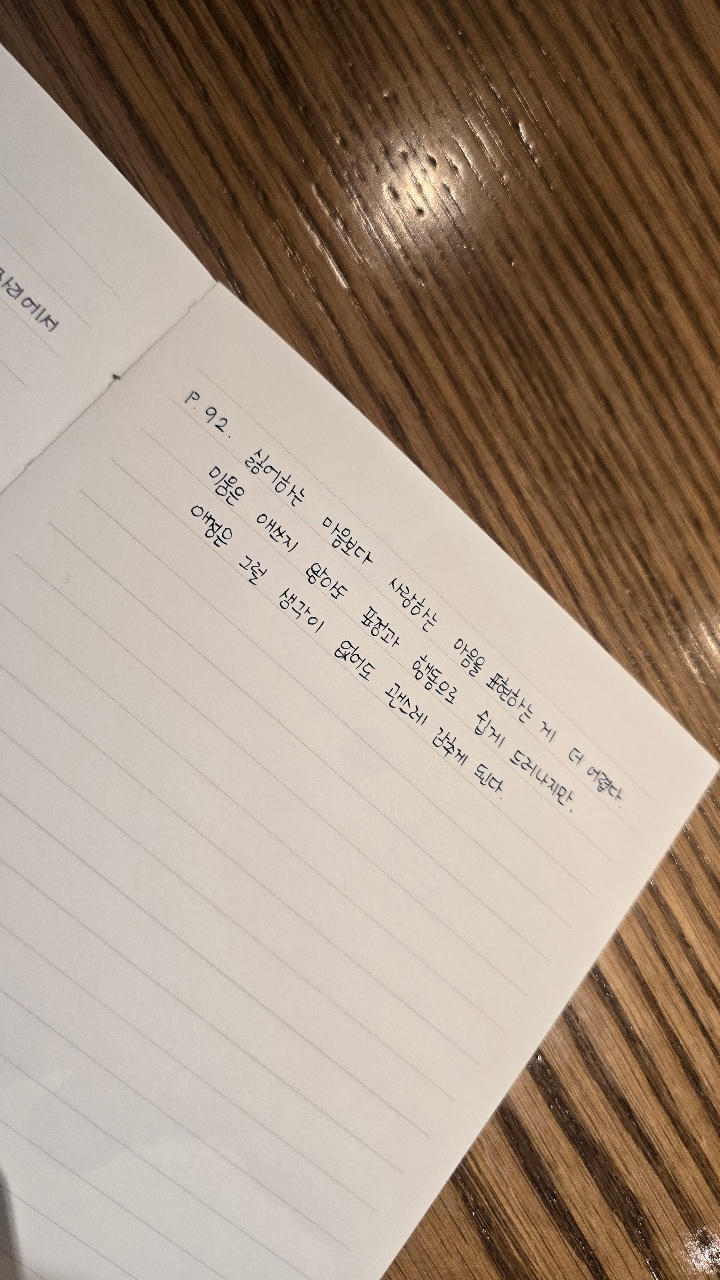 자리에서
P. 92. 싫어하는 마음보다 사랑하는 마음을 표현하는 게 더 어렵다.
미움은 애쓰지 않아도 표정과 행동으로 쉽게 드러나지만,
애정은 그럴 생각이 없어도 괜스레 감추게 된다.